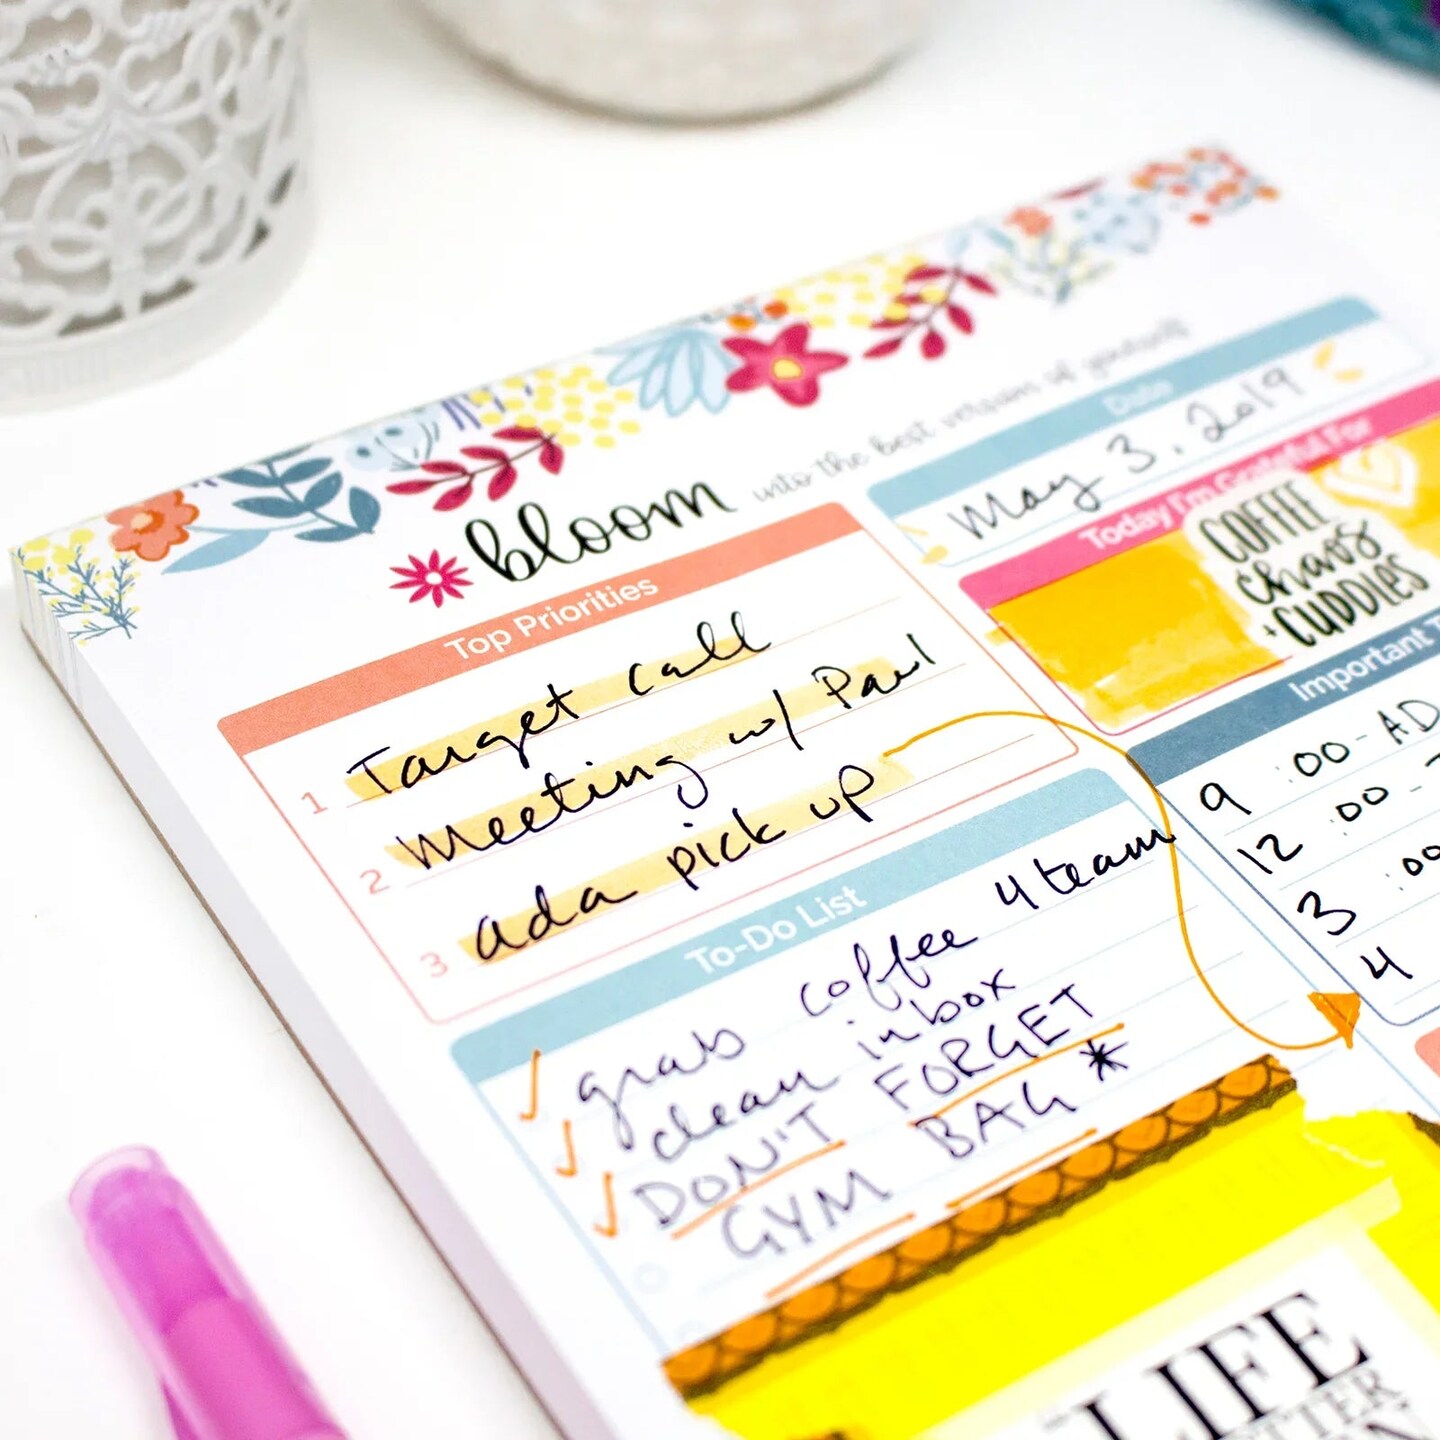 bloom into the best version of yourself
Date
May 3, 2019
Top Priorities
1 Target call
2 Meeting w/ Paul
3 Ada pick up
Today I'm Grateful For
COFFEE
chaos
+ CUDDLES
Important
9 :00 - AD
12 :00 -
3 :00
4
To-Do List
grab coffee 4 team
clean inbox
DON'T FORGET
GYM BAG *
LIFE